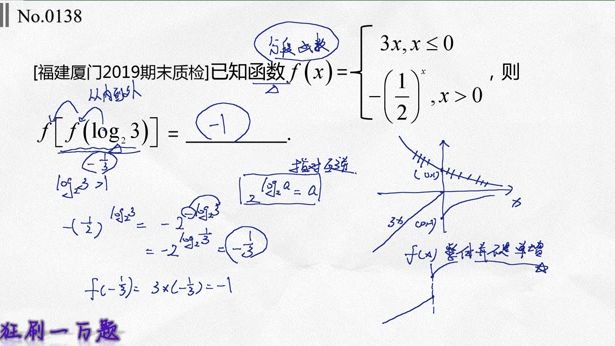 No.0138
分段函数
[福建厦门2019期末质检]已知函数 f(x)= { 3x, x≤0
-(1/2)^x, x>0 , 则
从内到外
f[f(log₂3)] = -1 .
-1/3
指对互逆
log₂3>1
2^(log₂a) = a
-(1/2)^(log₂3) = -2^(-log₂3)
= -2^(log₂(1/3)) = -1/3
f(-1/3) = 3×(-1/3) = -1
(0,1)
x
3x
(0,-1)
f(x) 整体并不是单增
狂刷一万题